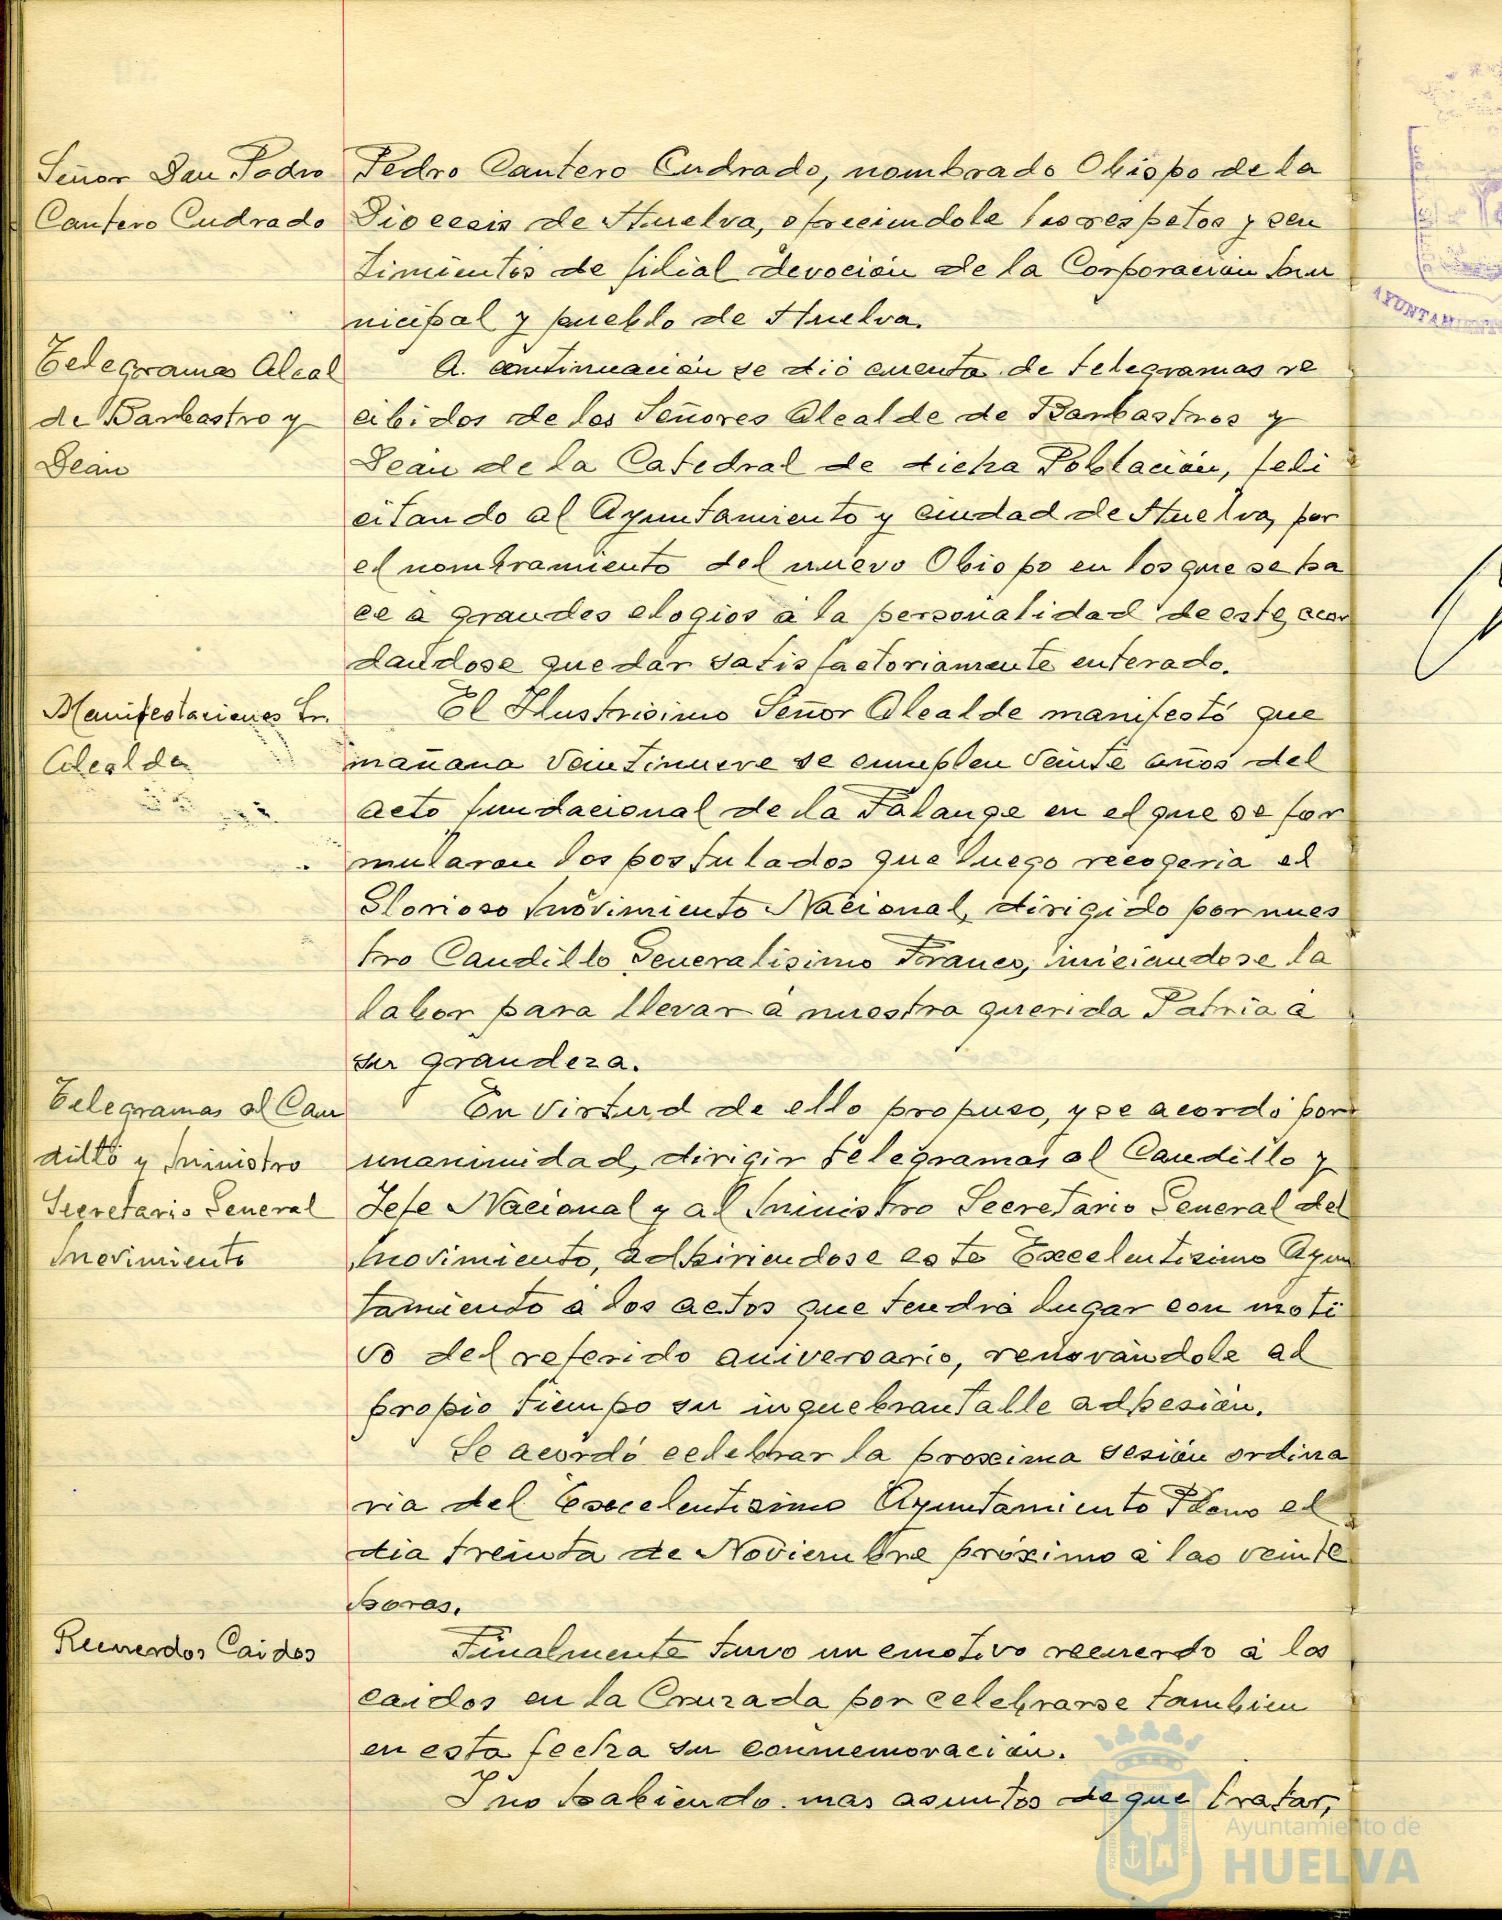 Señor Don Pedro
Cantero Cudrado
Pedro Cantero Cudrado, nombrado Obispo de la
Diocesis de Huelva, ofreciendole los respetos y sen
timientos de filial devoción de la Corporación Mu
nicipal y pueblo de Huelva.
Telegramas Alcal
de Barbastro y
Dean
A continuación se dió cuenta de telegramas re
cibidos de los Señores Alcalde de Barbastros y
Dean de la Catedral de dicha Población, feli
citando al Ayuntamiento y ciudad de Huelva, por
el nombramiento del nuevo Obispo en los que se ha
ce á grandes elogios á la personalidad de este, acor
dandose quedar satisfactoriamente enterado.
Manifestaciones Sr.
Alcalde
El Ilustrisimo Señor Alcalde manifestó que
mañana veintinueve se cumplen veinte años del
acto fundacional de la Falange en el que se for
mularon los postulados que luego recogeria el
Glorioso Movimiento Nacional, dirigido por nues
tro Caudillo Generalisimo Franco, iniciandose la
labor para llevar á nuestra querida Patria á
su grandeza.
Telegramas al Cau
dillo y Ministro
Secretario General
Movimiento
En virtud de ello propuso, y se acordó por
unanimidad, dirigir telegramas al Caudillo y
Jefe Nacional y al Ministro Secretario General del
Movimiento, adhiriendose este Excelentisimo Ayun
tamiento á los actos que tendrá lugar con moti
vo del referido aniversario, renovándole al
propio tiempo su inquebrantable adhesión.
Se acordó celebrar la proxima sesión ordina
ria del Excelentisimo Ayuntamiento Pleno el
dia treinta de Noviembre próximo á las veinte
horas.
Recuerdos Caidos
Finalmente tuvo un emotivo recuerdo á los
caidos en la Cruzada por celebrarse tambien
en esta fecha su conmemoración.
Y no habiendo mas asuntos de que tratar,
AYUNTAMIENTO
Ayuntamiento de
HUELVA